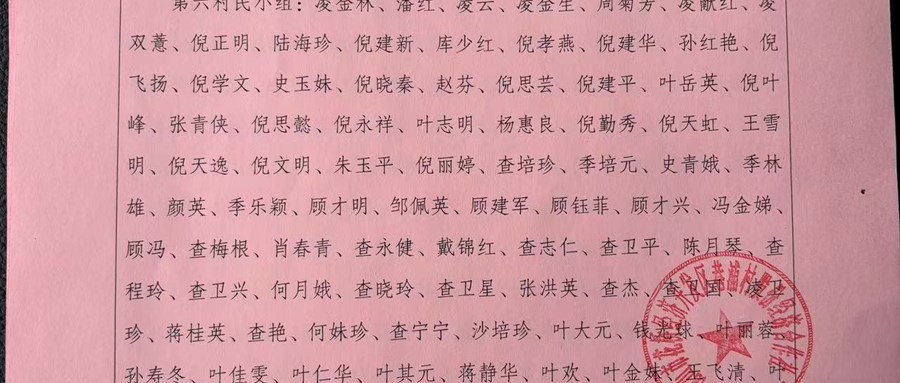 第六村民小组：凌金林、潘红、凌云、凌金生、周菊芳、凌献红、凌
双薏、倪正明、陆海珍、倪建新、库少红、倪孝燕、倪建华、孙红艳、倪
飞扬、倪学文、史玉妹、倪晓秦、赵芬、倪思芸、倪建平、叶岳英、倪叶
峰、张青侠、倪思懿、倪永祥、叶志明、杨惠良、倪勤秀、倪天虹、王雪
明、倪天逸、倪文明、朱玉平、倪丽婷、查培珍、季培元、史青娥、季林
雄、颜英、季乐颖、顾才明、邹佩英、顾建军、顾钰菲、顾才兴、冯金娣、
顾冯、查梅根、肖春青、查永健、戴锦红、查志仁、查卫平、陈月琴、查
程玲、查卫兴、何月娥、查晓玲、查卫星、张洪英、查杰、查卫国、凌卫
珍、蒋桂英、查艳、何妹珍、查宁宁、沙培珍、叶大元、钱光球、叶丽蓉、
孙寿冬、叶佳雯、叶仁华、叶其元、蒋静华、叶欢、叶金妹、王飞清、叶